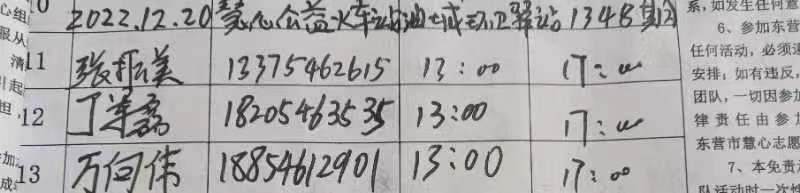 心组
服从
清
引起
担
加
成
10 2022.12.20 慧心公益火车站油城环卫驿站 1348期
11 张振美 13375462615 13:00 17:00
12 丁 18205463535 13:00 17:00
13 万何伟 18854612901 13:00 17:00
系,如发生任何意
6、参加东营
任何活动,必须
安排;如有违反,
团队,一切因参加
律责任由参加
东营市慧心志愿
7、本免责
队活动时一次性